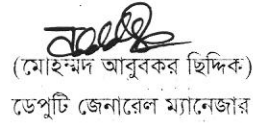 (মোহম্মদ আবুবকর ছিদ্দিক)
ডেপুটি জেনারেল ম্যানেজার